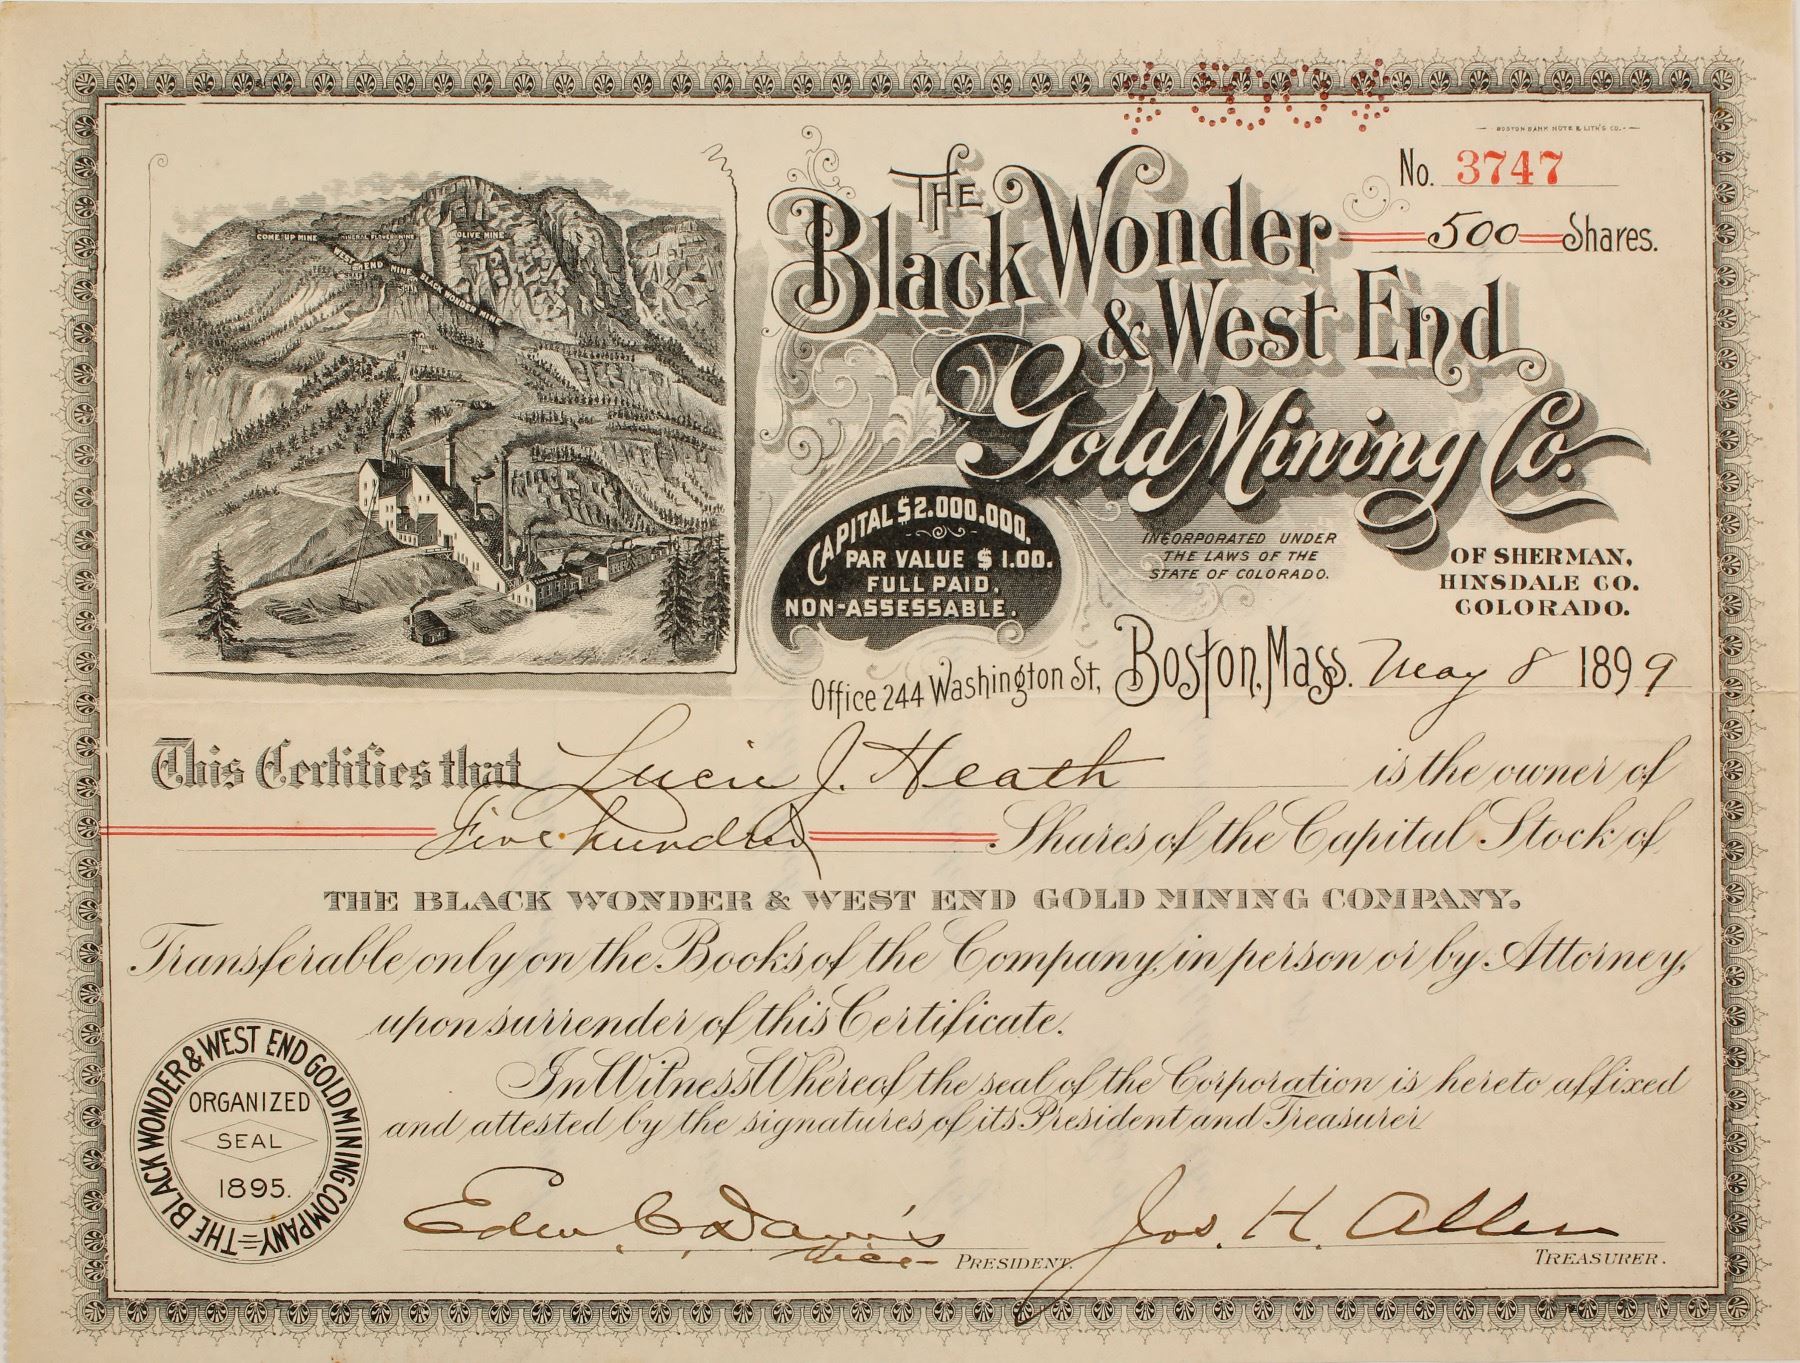 BOSTON BANK NOTE & LITH'G CO.
No. 3747
500 Shares.
THE
Black Wonder
& West End
Gold Mining Co.
COME UP MINE
MINERAL FLOWER MINE
OLIVE MINE
WEST END MINE
BLACK WONDER MINE
CAPITAL $2.000.000.
PAR VALUE $1.00.
FULL PAID.
NON-ASSESSABLE.
INCORPORATED UNDER
THE LAWS OF THE
STATE OF COLORADO.
OF SHERMAN,
HINSDALE CO.
COLORADO.
Office 244 Washington St, Boston, Mass. May 8 1899
This Certifies that Lucie J. Heath is the owner of
Five hundred Shares of the Capital Stock of
THE BLACK WONDER & WEST END GOLD MINING COMPANY.
Transferable only on the Books of the Company, in person or by Attorney,
upon surrender of this Certificate.
In Witness Whereof the seal of the Corporation is hereto affixed
and attested by the signatures of its President and Treasurer
THE BLACK WONDER & WEST END GOLD MINING COMPANY
ORGANIZED
SEAL
1895.
Edw. C. Davis
Vice- PRESIDENT.
Jos. H. Allen
TREASURER.